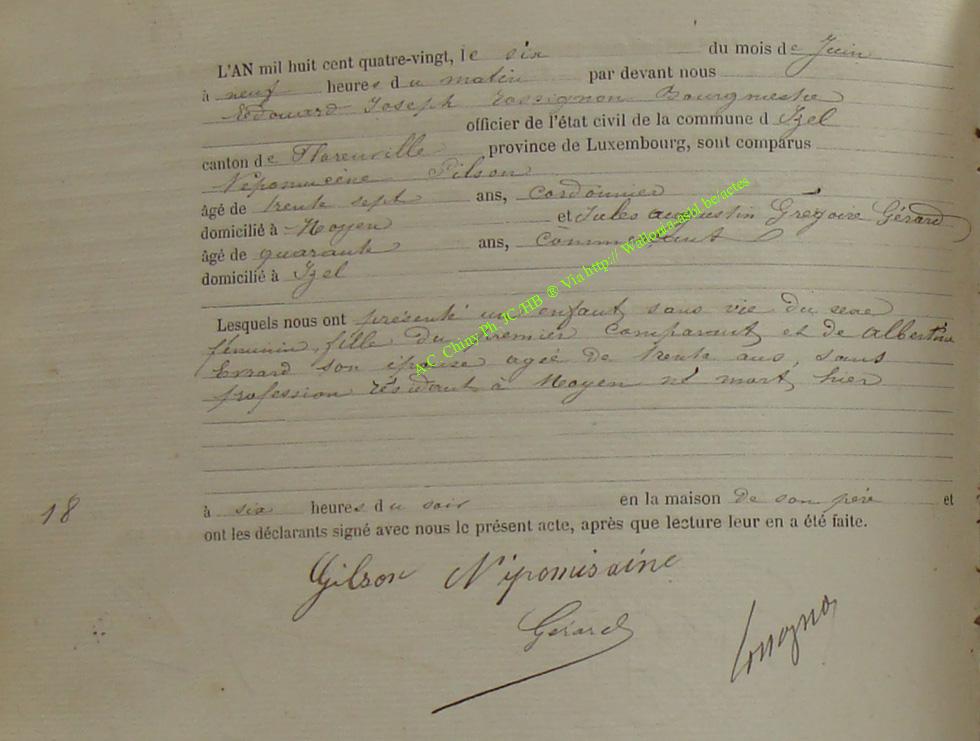 L'AN mil huit cent quatre-vingt, le six du mois de Juin
à neuf heures du matin par devant nous
Edouard Joseph Rossignon Bourgmestre
officier de l'état civil de la commune d Izel
canton de Florenville province de Luxembourg, sont comparus
Népomucène Gilson
âgé de trente sept ans, cordonnier
domicilié à Moyen et Jules augustin Grégoire Gérard
âgé de quarante ans, commerçant
domicilié à Izel
Lesquels nous ont présenté un enfant sans vie du sexe
féminin, fille du premier comparant et de Albertine
Errard son épouse agée de trente ans, sans
profession résidant à Moyen né mort, hier
18
à six heures du soir en la maison de son père et
ont les déclarants signé avec nous le présent acte, après que lecture leur en a été faite.
Gilson Nipomisaine
Gérard
A.C. Chiny Ph. JC /HB ® Via http:// Wallonia-asbl.be/actes